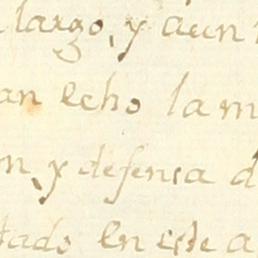 largo, y aun
an echo la m
n, y defensa d
tado en este a